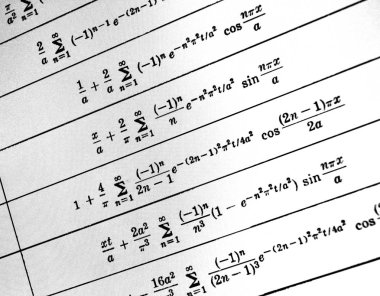 π/a² Σ_{n=1}^{∞}
2/a Σ_{n=1}^{∞} (-1)^{n-1} e^{-(2n-1)
1/a + 2/a Σ_{n=1}^{∞} (-1)^n e^{-n²π²t/a²} cos nπx/a
x/a + 2/π Σ_{n=1}^{∞} (-1)^n/n e^{-n²π²t/a²} sin nπx/a
1 + 4/π Σ_{n=1}^{∞} (-1)^n/(2n - 1) e^{-(2n-1)²π²t/4a²} cos (2n - 1)πx/2a
xt/a + 2a²/π³ Σ_{n=1}^{∞} (-1)^n/n³ (1 - e^{-n²π²t/a²}) sin nπx/a
16a²/ Σ_{n=1}^{∞} (-1)^n/(2n - 1)³ e^{-(2n-1)²π²t/4a²} cos